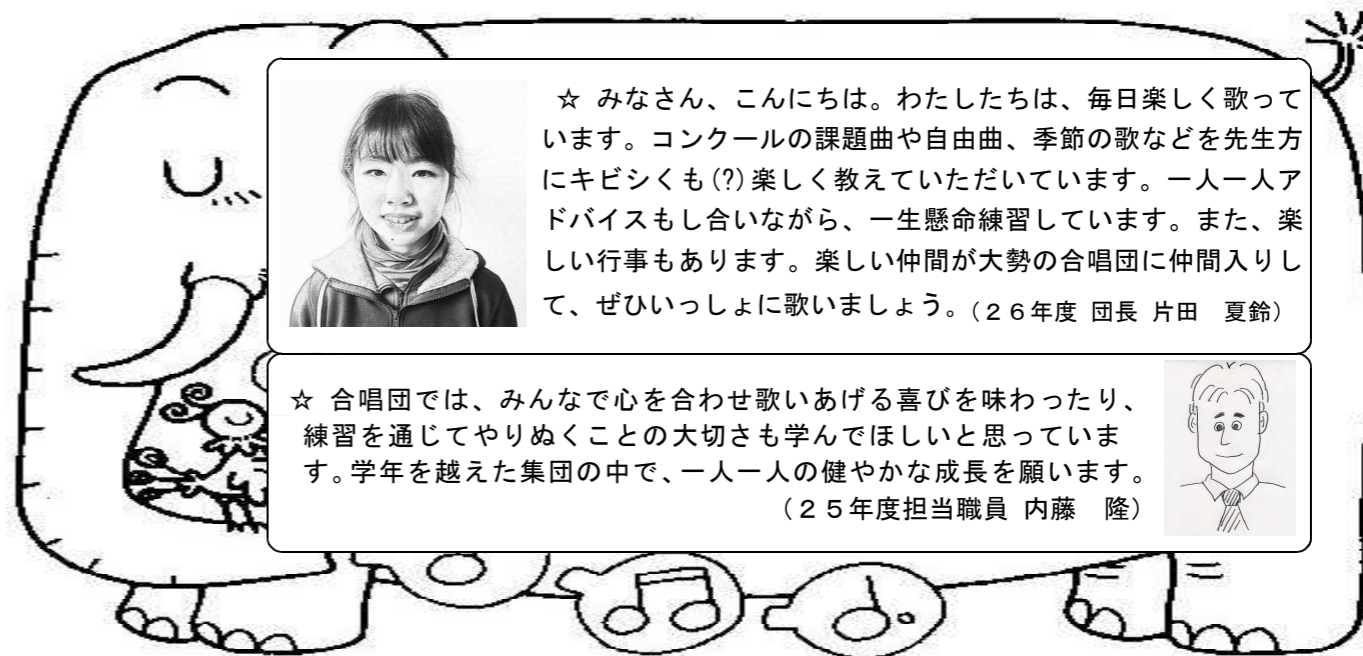 ☆ みなさん、こんにちは。わたしたちは、毎日楽しく歌って
います。コンクールの課題曲や自由曲、季節の歌などを先生方
にキビシくも(?)楽しく教えていただいています。一人一人ア
ドバイスもし合いながら、一生懸命練習しています。また、楽
しい行事もあります。楽しい仲間が大勢の合唱団に仲間入りし
て、ぜひいっしょに歌いましょう。(26年度 団長 片田　夏鈴)
☆ 合唱団では、みんなで心を合わせ歌いあげる喜びを味わったり、
練習を通じてやりぬくことの大切さも学んでほしいと思っていま
す。学年を越えた集団の中で、一人一人の健やかな成長を願います。
(25年度担当職員 内藤　隆)